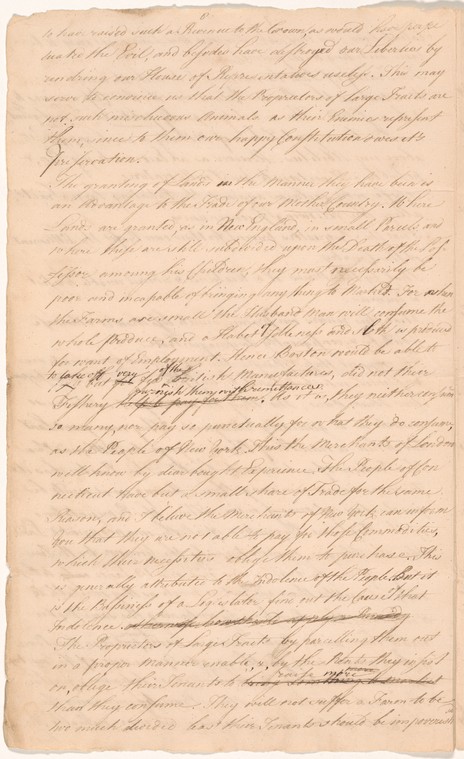 8
to have raised such a Revenue to the Crown, as would have perpe
tuated the Evil, and besides have destroyed our Liberties by
rendring our House of Representatives useless. This may
serve to convince us that the Proprietors of large Tracts are
not such mischievous Animals as their Enemies represent
them, since to them our happy Constitution owes it's
preservation.
The granting of Lands in the Manner they have been is
an advantage to the Trade of our Mother Country. Where
Lands are granted, as in New England, in small Parcels, and
where these are still subdivided upon the Death of the Pos
sessor among his Children, they must necessarily be
poor and incapable of bringing any thing to Market. For when
the Farms are small the Husband man will consume the
whole Produce, and a Habit of Idleness and Sloth is produced
for want of Employment. Hence Boston would be able
to take off but very few of the British Manufactures, did not their
furnish them with remittances
Distillery As it is, they neither consume
so many, nor pay so punctually for what they do consume,
as the People of New York. This the Merchants of London
well know by dear bought Experience. The People of Con
necticut have but a small share of Trade for the same
Reason, and I believe the Merchants of New York can inform
you that they are not able to pay for those Commodities,
which their necessities oblige them to purchase. This
is generally attributed to the Indolence of the People. But it
is the Business of a Legislator find out the Cause of that
Indolence
The Proprietors of large Tracts by parcelling them out
in a proper manner enable, & by the Rents they insist
on, oblige their Tenants to raise more
than they consume. They will not suffer a Farm to be
too much divided lest their Tenants should be impoverish